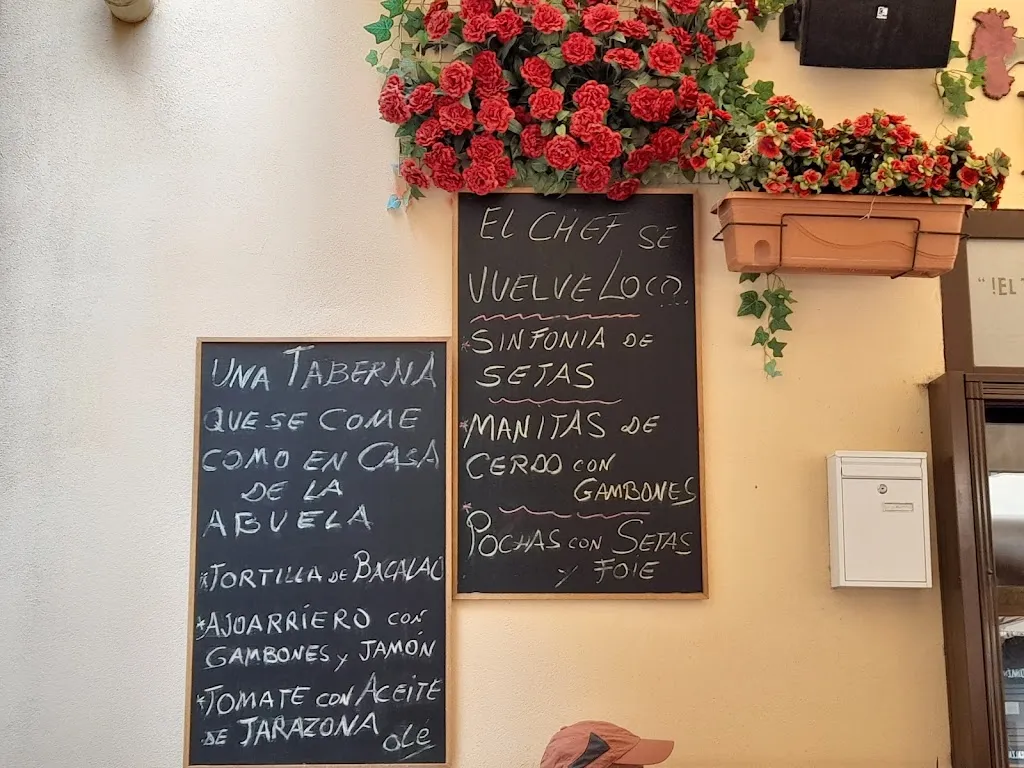 UNA TABERNA
QUE SE COME
COMO EN CASA
DE LA
ABUELA
*TORTILLA DE BACALAO
*AJOARRIERO CON
GAMBONES Y JAMÓN
*TOMATE CON ACEITE
DE TARAZONA
OLÉ
EL CHEF SE
VUELVE LOCO...
*SINFONIA DE
SETAS
*MANITAS DE
CERDO CON
GAMBONES
*POCHAS CON SETAS
Y FOIE
"¡EL